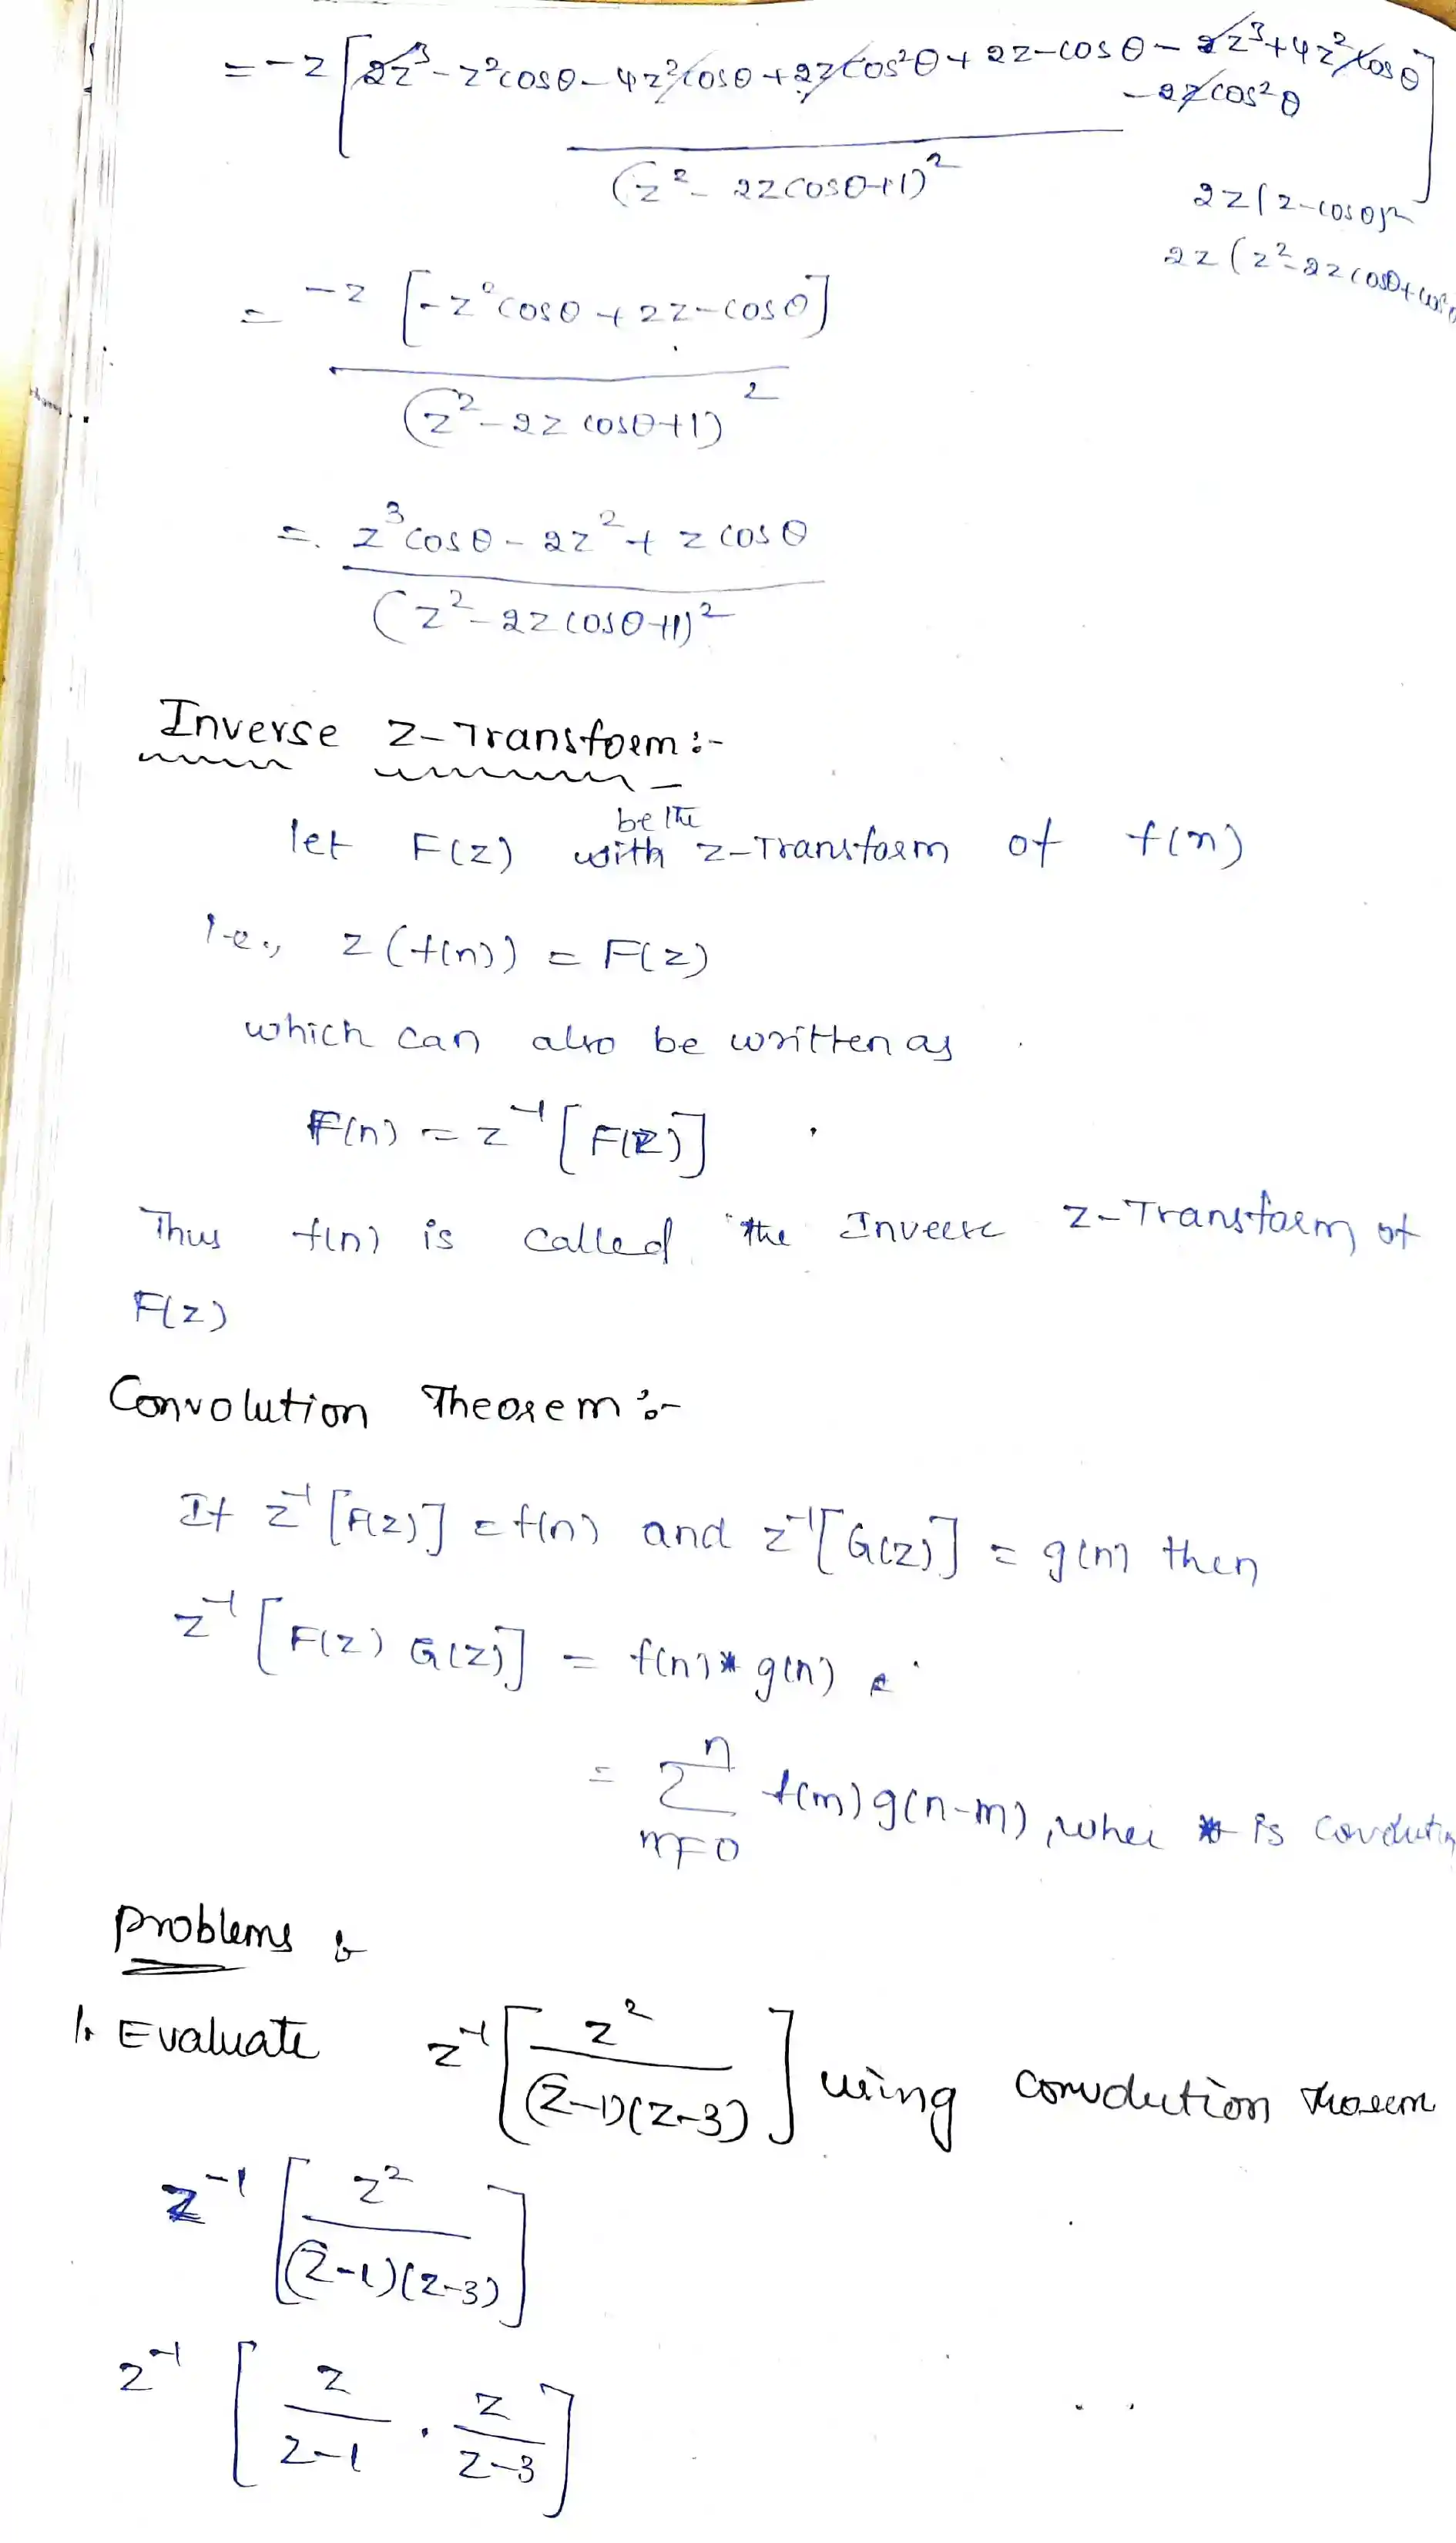 = -z [2z³ - z²cosθ - 4z²cosθ + 2zcos²θ + 2z - cosθ - 2z³ + 4z²cosθ
- 2zcos²θ]
(z² - 2zcosθ+1)²
2z(z-cosθ)²
2z(z²-2zcosθ+cos²θ
= -z [-z²cosθ + 2z - cosθ]
(z² - 2z cosθ+1)²
= z³cosθ - 2z² + z cosθ
(z² - 2z cosθ+1)²
Inverse Z-Transform :-
be the
let F(z) with z-Transform of f(n)
i.e., z(f(n)) = F(z)
which can also be written as
F(n) = z⁻¹[F(z)]
Thus f(n) is called the Inverse Z-Transform of
F(z)
Convolution Theorem :-
If z⁻¹[F(z)] = f(n) and z⁻¹[G(z)] = g(n) then
z⁻¹[F(z) G(z)] = f(n) * g(n)
= n
Σ f(m) g(n-m), wher * is
m=0
Problems :-
1. Evaluate z⁻¹[z²
(z-1)(z-3)] using convolution theorem
z⁻¹[z²
(z-1)(z-3)]
z⁻¹[z/z-1 . z/z-3]